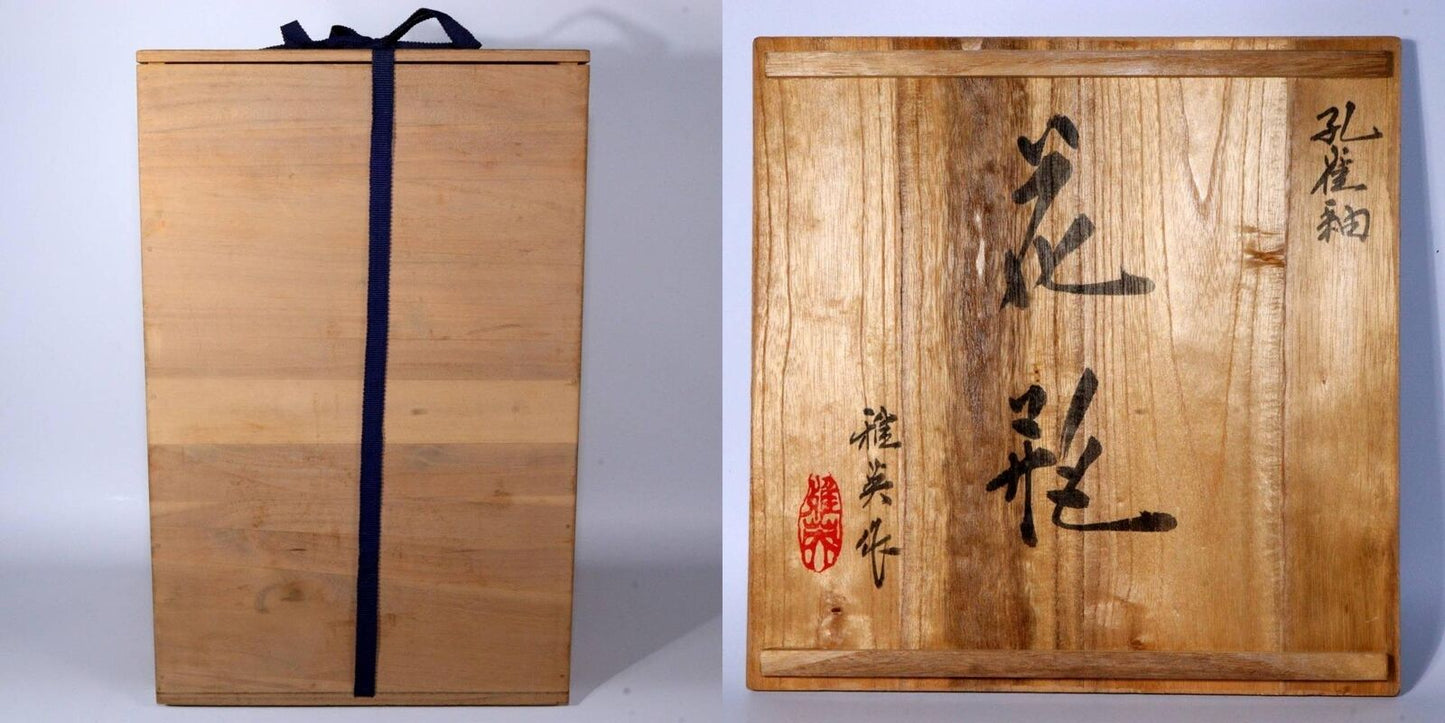 孔雀釉
花瓶
雅英作
雅英